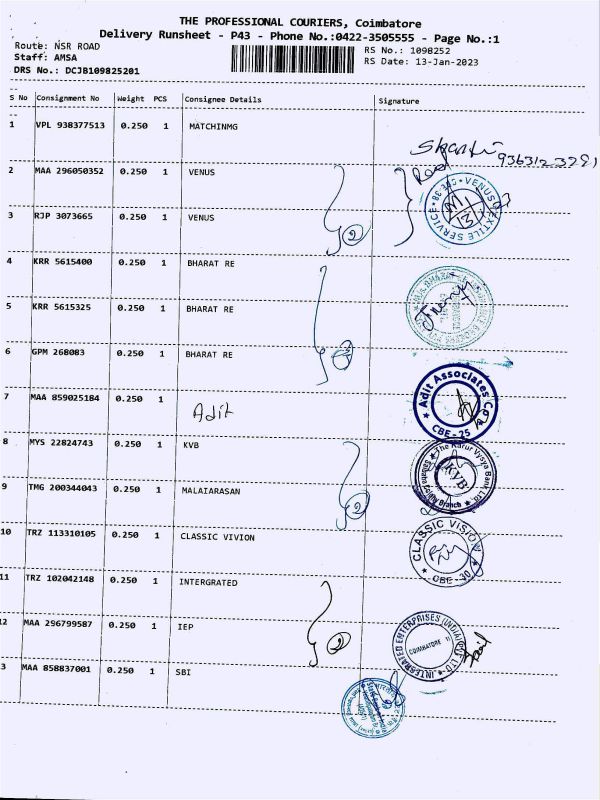 THE PROFESSIONAL COURIERS, Coimbatore
Delivery Runsheet - P43 - Phone No.:0422-3505555 - Page No.:1
Route: NSR ROAD
RS No.: 1098252
Staff: AMSA
RS Date: 13-Jan-2023
DRS No.: DCJB109825201
S No Consignment No Weight PCS Consignee Details Signature
1 VPL 938377513 0.250 1 MATCHINMG
2 MAA 296050352 0.250 1 VENUS
3 RJP 3073665 0.250 1 VENUS
2
VENUS TEXTILE SERVICE CBE-38
4 KRR 5615400 0.250 1 BHARAT RE
5 KRR 5615325 0.250 1 BHARAT RE
6 GPM 268083 0.250 1 BHARAT RE
7 MAA 859025184 0.250 1 Adit
Adit Associates CBE-25
8 MYS 22824743 0.250 1 KVB
The Karur Vysya Bank Ltd. KVB Branch
9 TMG 200344043 0.250 1 MALAIARASAN
2
10 TRZ 113310105 0.250 1 CLASSIC VIVION
CLASSIC VISION CBE
11 TRZ 102042148 0.250 1 INTERGRATED
12 MAA 296799587 0.250 1 IEP
2
INTEGRATED ENTERPRISES (INDIA) PVT. LTD. COIMBATORE
3 MAA 858837001 0.250 1 SBI